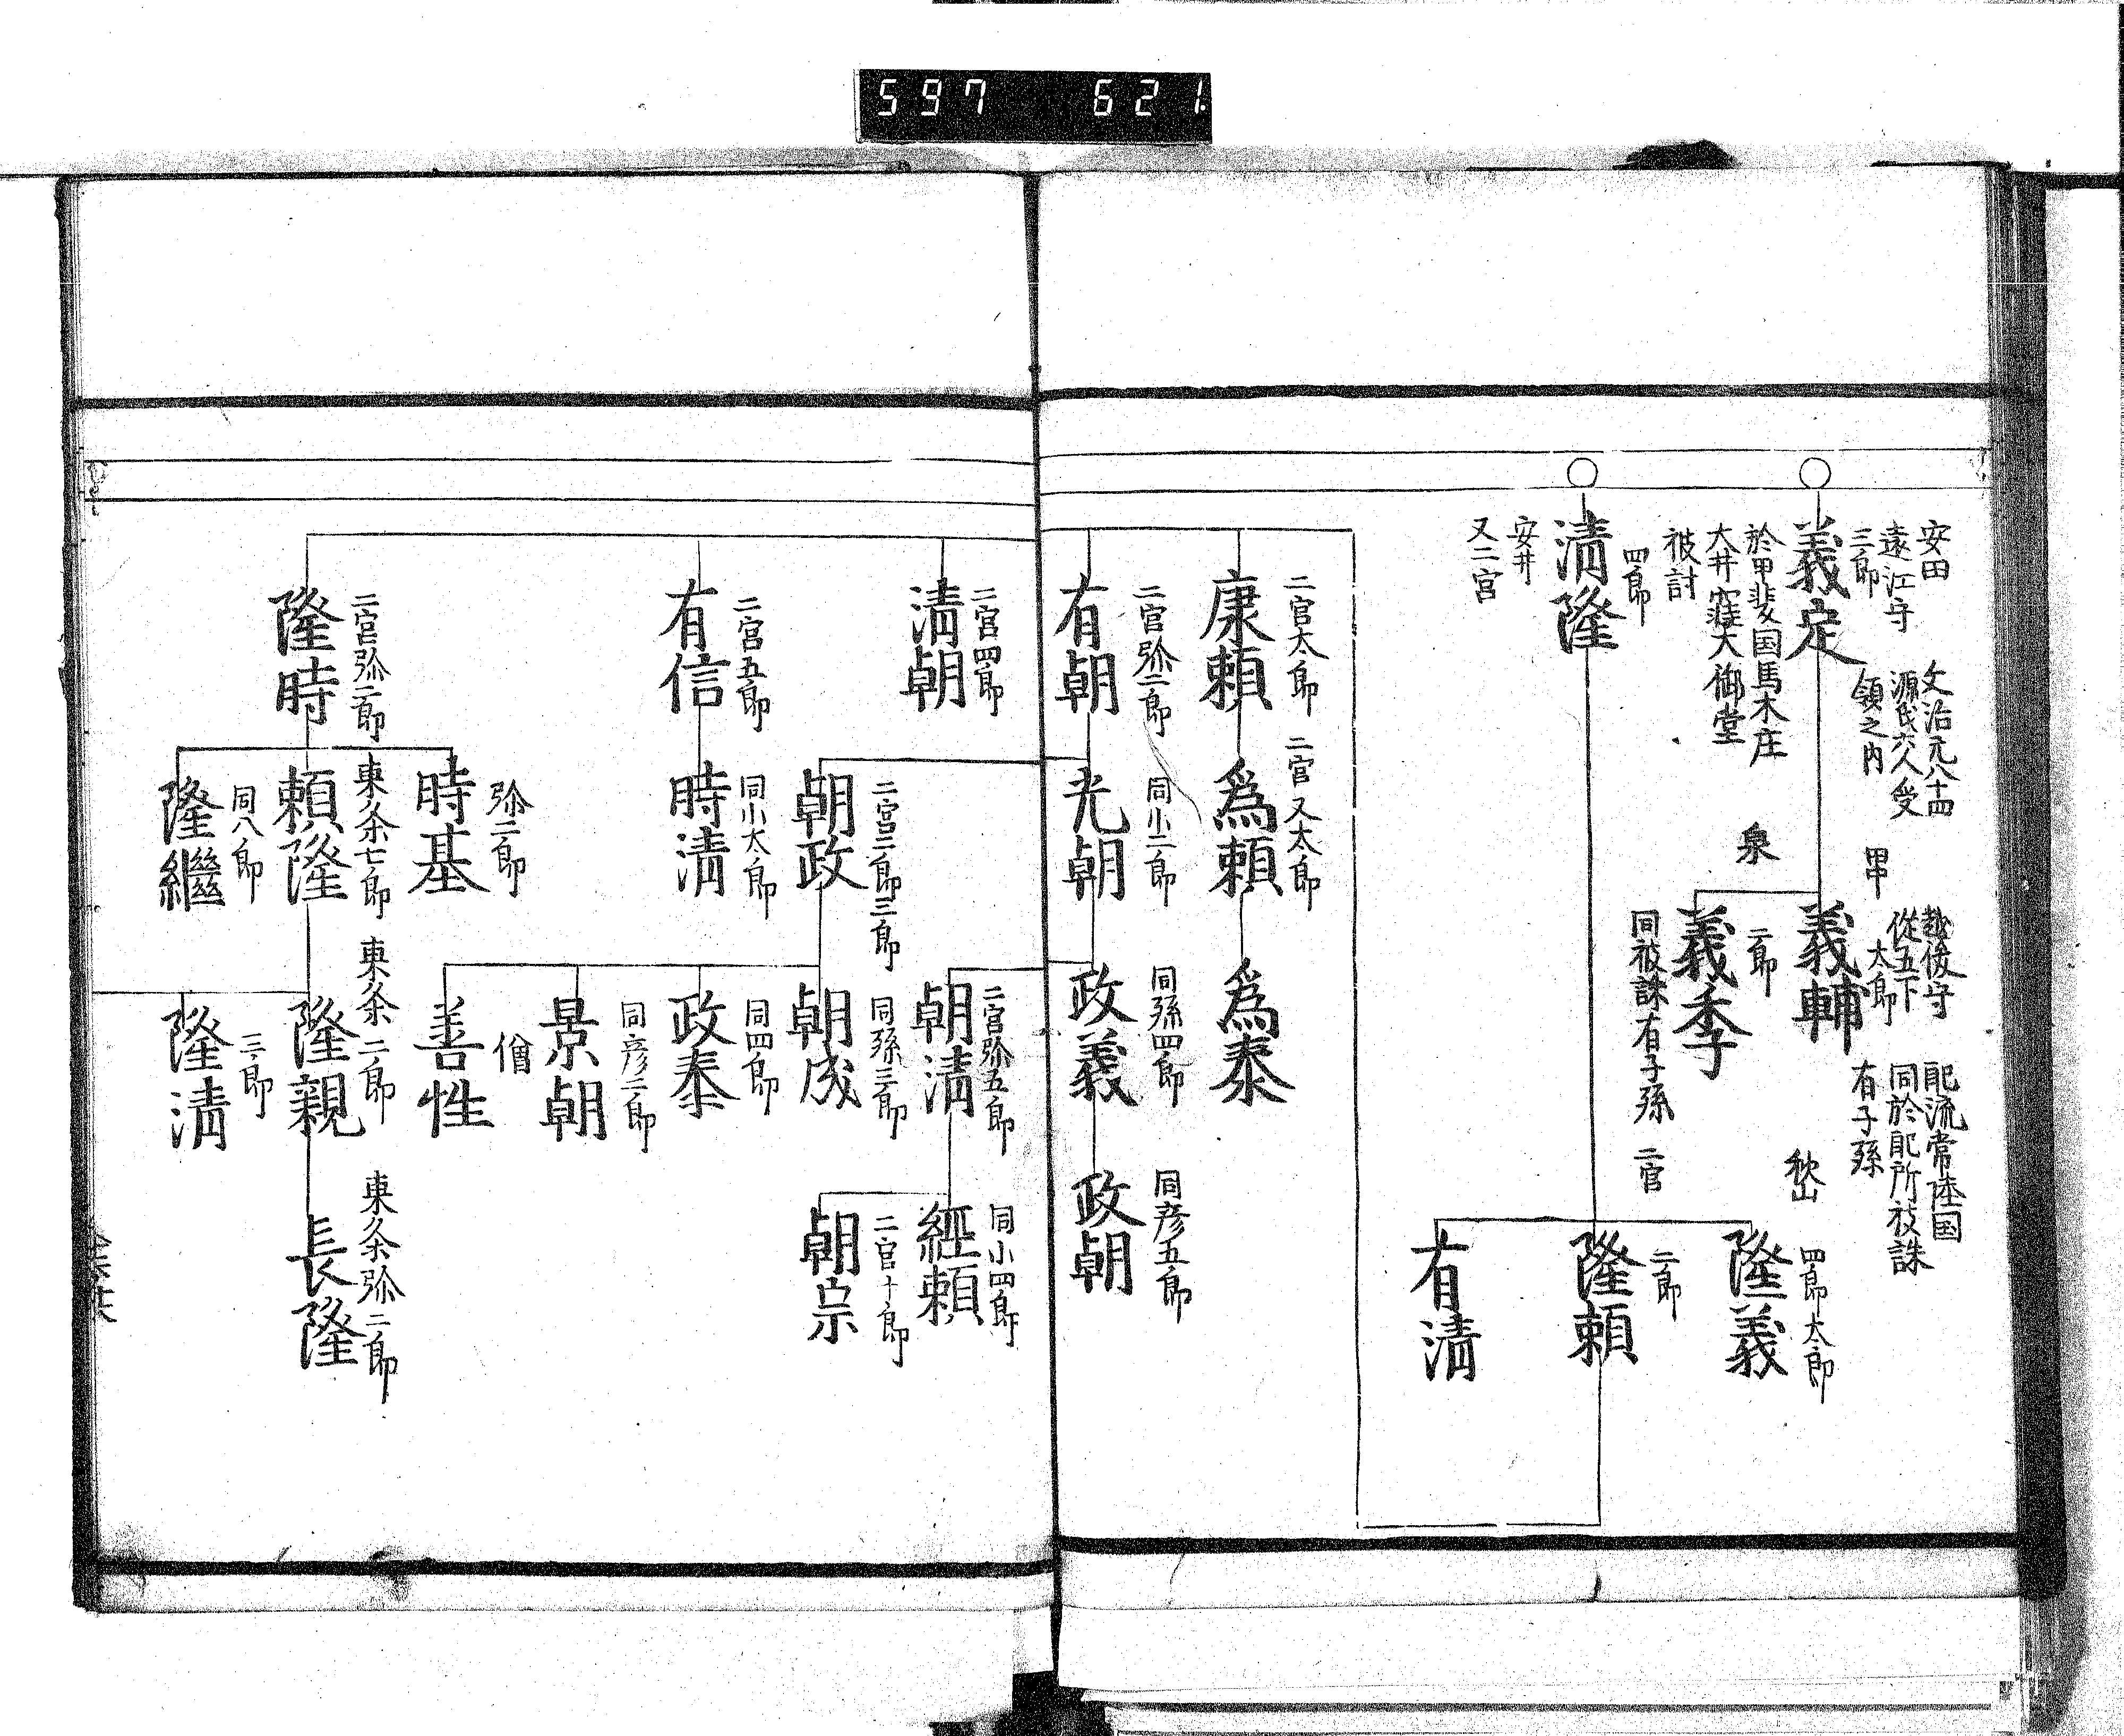 597 621
安田
遠江守
三郎
義定
文治元八十四
源氏六人受
領之内
於甲斐国馬木庄
大井窪大御堂
被討
越後守
從五下
太郎
義輔
配流常陸国
同於配所被誅
有子孫
泉
二郎
義季
同被誅有子孫
四郎
清隆
安井
又二宮
四郎太郎
隆義
二宮
二郎
隆頼
有清
二宮太郎
康頼
二宮又太郎
為頼
為泰
二宮弥二郎
有朝
同小二郎
光朝
同孫四郎
政義
同彦五郎
政朝
二宮四郎
清朝
二宮弥五郎
朝清
同小四郎
經頼
二宮十郎
朝宗
二宮三郎三郎
朝政
同孫三郎
朝成
同四郎
政泰
同彦二郎
景朝
僧
善性
二宮五郎
有信
同小太郎
時清
二宮弥二郎
隆時
弥二郎
時基
東条七郎
頼隆
東条二郎
隆親
東条弥二郎
長隆
三郎
隆清
同八郎
隆繼